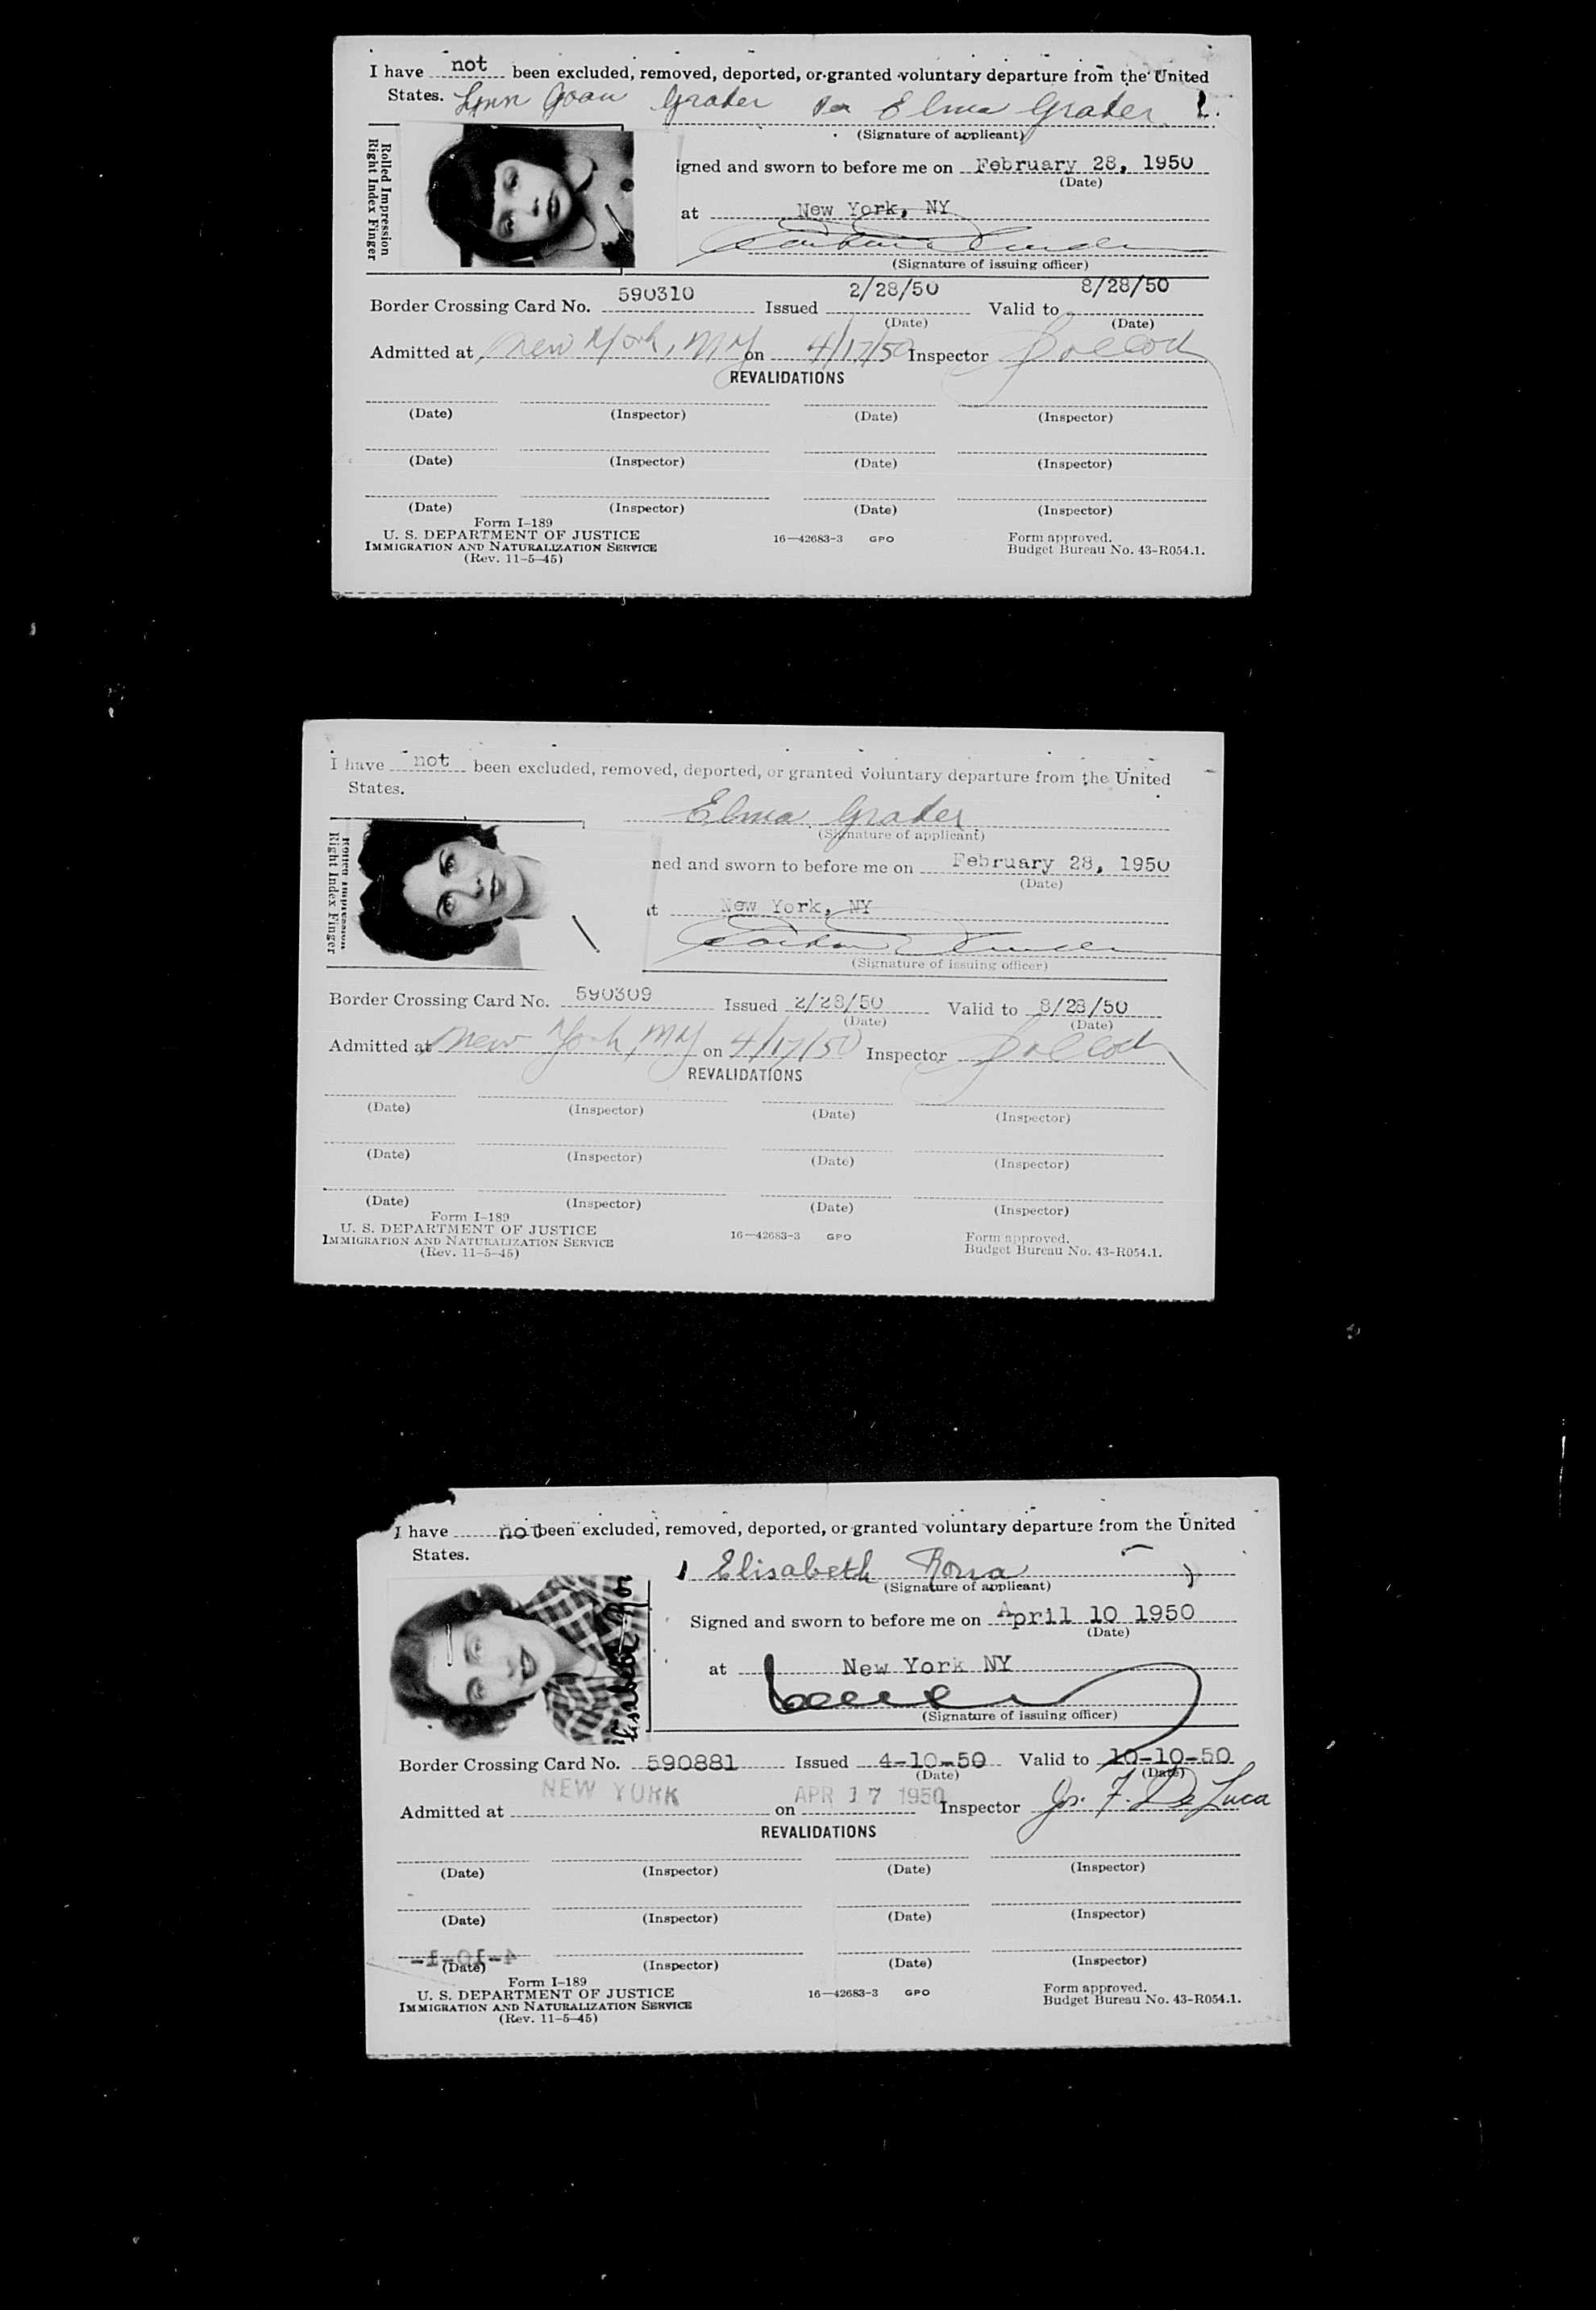 I have not been excluded, removed, deported, or granted voluntary departure from the United
States. Lynn Joan Grader per Elma Grader
(Signature of applicant)
Rolled Impression
Right Index Finger
igned and sworn to before me on February 28, 1950
(Date)
at New York, NY
(Signature of issuing officer)
Border Crossing Card No. 590310 Issued 2/28/50 Valid to 8/28/50
(Date) (Date)
Admitted at New York, NY on 4/17/50 Inspector
REVALIDATIONS
(Date) (Inspector) (Date) (Inspector)
(Date) (Inspector) (Date) (Inspector)
(Date) (Inspector) (Date) (Inspector)
Form I-189
U. S. DEPARTMENT OF JUSTICE 16—42683-3 GPO Form approved.
IMMIGRATION AND NATURALIZATION SERVICE Budget Bureau No. 43-R054.1.
(Rev. 11-5-45)
I have not been excluded, removed, deported, or granted voluntary departure from the United
States.
Elma Grader
(Signature of applicant)
Rolled Impression
Right Index Finger
ned and sworn to before me on February 28, 1950
(Date)
t New York, NY
(Signature of issuing officer)
Border Crossing Card No. 590309 Issued 2/28/50 Valid to 8/28/50
(Date) (Date)
Admitted at New York, NY on 4/17/50 Inspector
REVALIDATIONS
(Date) (Inspector) (Date) (Inspector)
(Date) (Inspector) (Date) (Inspector)
(Date) (Inspector) (Date) (Inspector)
Form I-189
U. S. DEPARTMENT OF JUSTICE 16—42683-3 GPO Form approved.
IMMIGRATION AND NATURALIZATION SERVICE Budget Bureau No. 43-R054.1.
(Rev. 11-5-45)
I have not been excluded, removed, deported, or granted voluntary departure from the United
States.
Elisabeth Rona
(Signature of applicant)
Signed and sworn to before me on April 10 1950
(Date)
at New York NY
(Signature of issuing officer)
Border Crossing Card No. 590881 Issued 4-10-50 Valid to 10-10-50
(Date) (Date)
Admitted at NEW YORK on APR 17 1950 Inspector Jos. F. De Luca
REVALIDATIONS
(Date) (Inspector) (Date) (Inspector)
(Date) (Inspector) (Date) (Inspector)
(Date) (Inspector) (Date) (Inspector)
Form I-189
U. S. DEPARTMENT OF JUSTICE 16—42683-3 GPO Form approved.
IMMIGRATION AND NATURALIZATION SERVICE Budget Bureau No. 43-R054.1.
(Rev. 11-5-45)